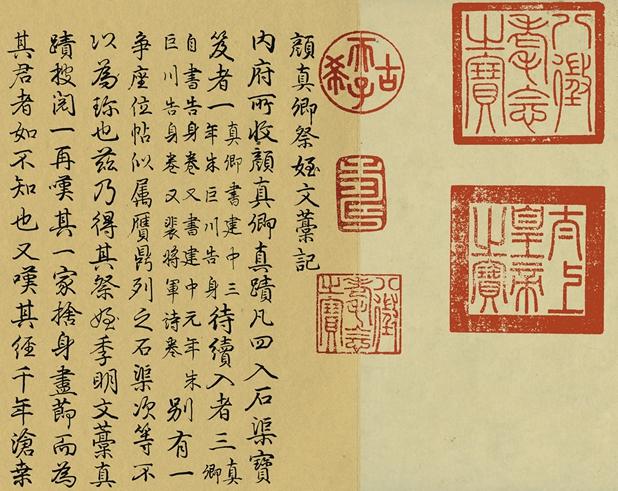 八徵耄念之寶
太上皇帝之寶
古希天子
八徵耄念之寶
顏真卿祭姪文藁記
內府所收顏真卿真蹟凡四入石渠寶
笈者一真卿書建中三年朱巨川告身待續入者三真卿
自書告身卷又書建中元年朱巨川告身卷又裴將軍詩卷別有一
爭座位帖似属贗鼎列之石渠次等不
以為珎也茲乃得其祭姪季明文藁真
蹟披閱一再嘆其一家捨身盡節而為
其君者如不知也又嘆其經千年滄桒